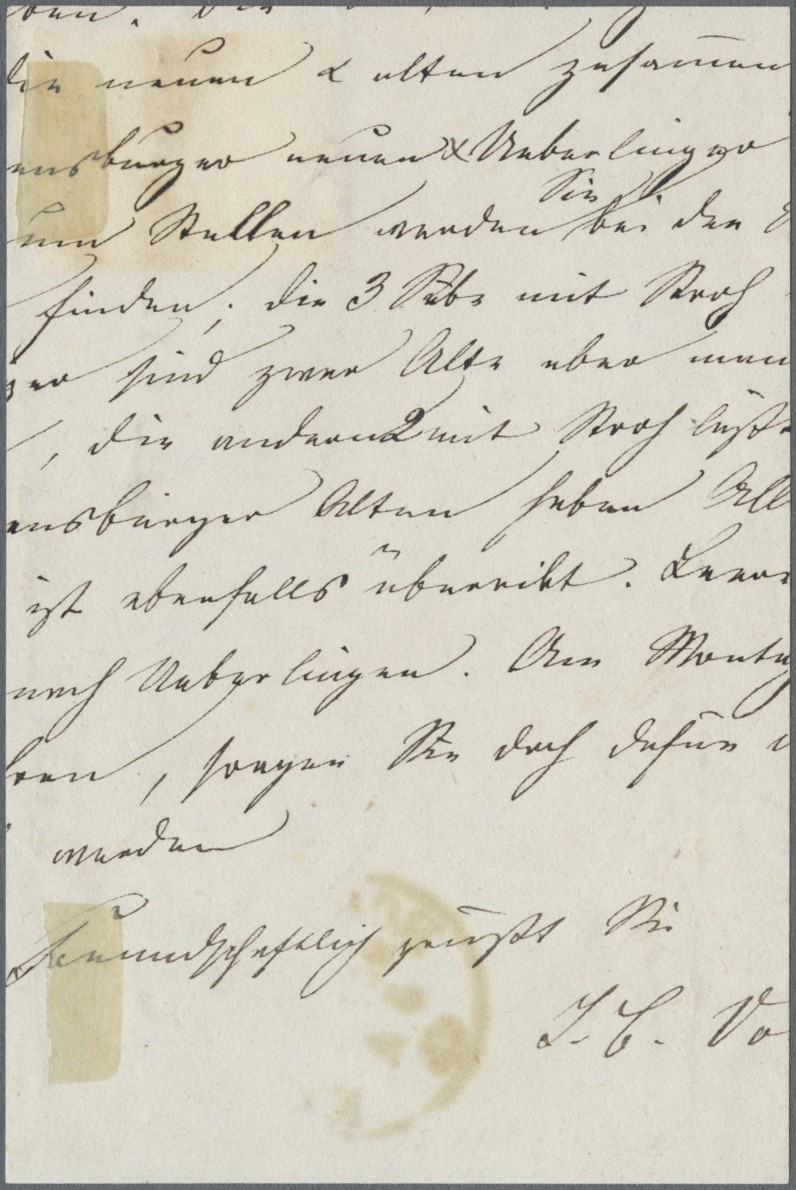 die neuen & alten zusammen
ensburger neuen & Ueberlinger
um Stellen werden Sie bei den
finden; die 3 Säke mit Stroh
ger sind zwar Alte aber man
, die andern 2 mit Stroh läßt
ensburger Alten haben All
ist ebenfalls überreibt.
nach Ueberlingen. Am Montag
ren, sorgen Sie doch dafür
werden
Freundschaftlich grüßt Sie
J. C. Vo